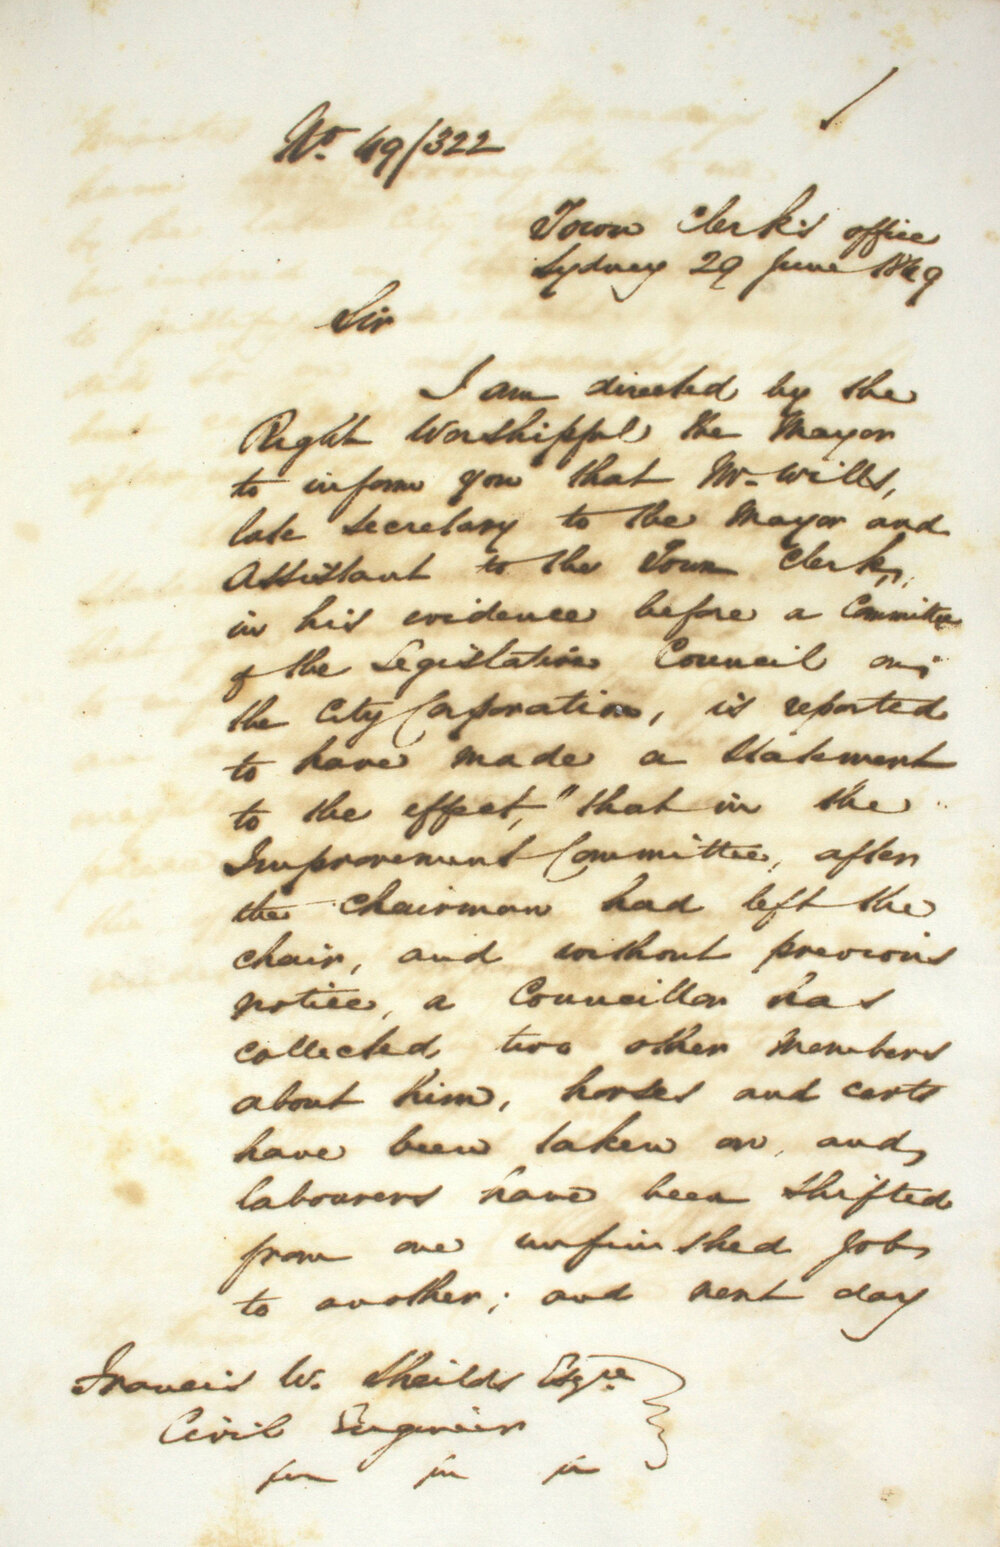 No. 49/322
Town Clerk's office
Sydney 29 June 1849
Sir
I am directed by the
Right Worshipful the Mayor
to inform you that Mr. Wills,
late Secretary to the Mayor and
Assistant to the Town Clerk,
in his evidence before a Committee
of the Legislative Council on
the City Corporation, is reported
to have made a statement
to the effect, "that in the
Improvement Committee, after
the Chairman had left the
chair, and without previous
notice, a Councillor has
collected two other members
about him, horses and carts
have been taken on, and
labourers have been shifted
from one unfinished job
to another; and next day
Francis W. Sheilds Esqre
Civil Engineer